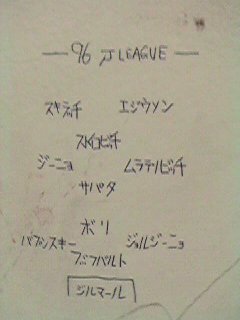 96 J LEAGUE
スキラッチ エジウソン
ストイコビッチ
ジーニョ ムラデノビッチ
サパタ
ボリ
ババンスキー ジョルジーニョ
ブッフバルト
ジルマール